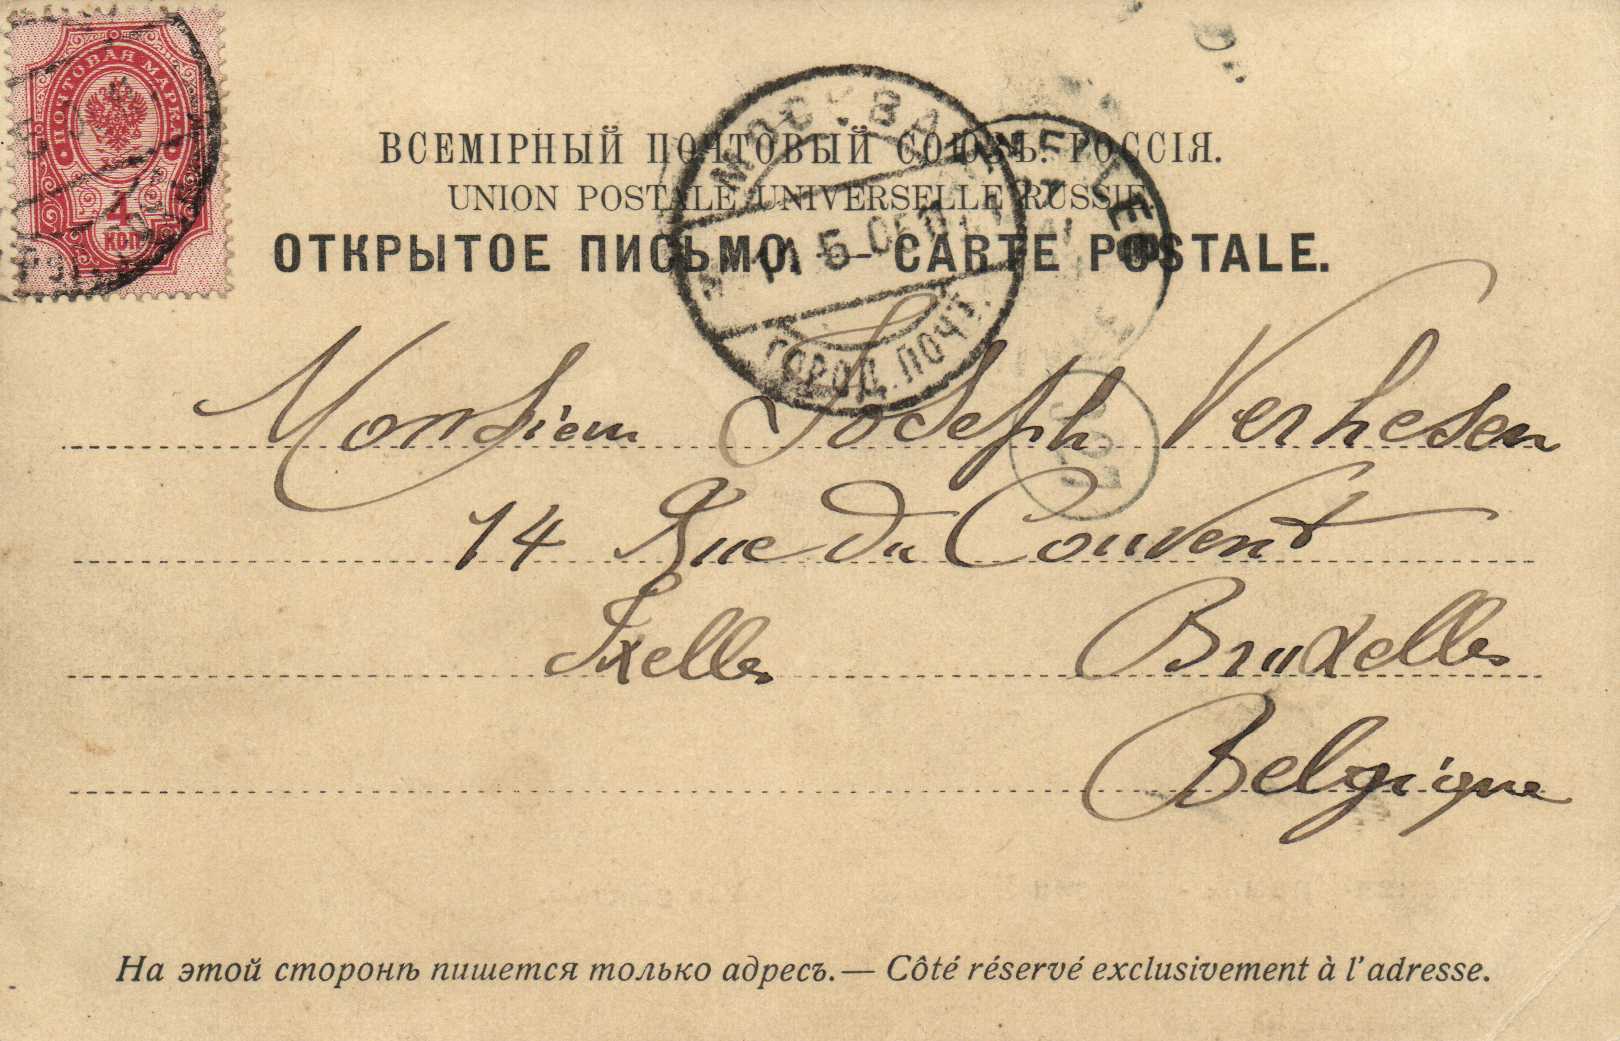 ПОЧТОВАЯ МАРКА
4
КОП
МОСКВА
ГОРОД. ПОЧТ.
ВСЕМІРНЫЙ ПОЧТОВЫЙ СОЮЗЪ. РОССІЯ.
UNION POSTALE UNIVERSELLE RUSSIE
ОТКРЫТОЕ ПИСЬМО. — CARTE POSTALE.
Monsieur Joseph Verhesen
14 Rue du Couvent
Ixelles Bruxelles
Belgique
На этой сторонѣ пишется только адресъ.— Côté réservé exclusivement à l'adresse.